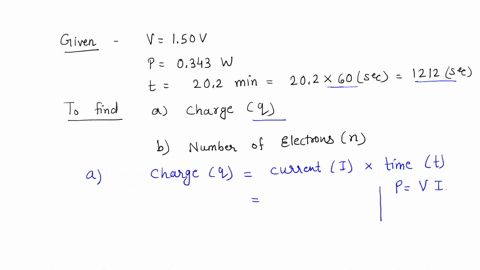 Given - V = 1.50 V
P = 0.343 W
t = 20.2 min = 20.2 × 60 (sec) = 1212 (sec)
To find a) Charge (q)
b) Number of Electrons (n)
a) Charge (q) = Current (I) × time (t)
= P = V I.